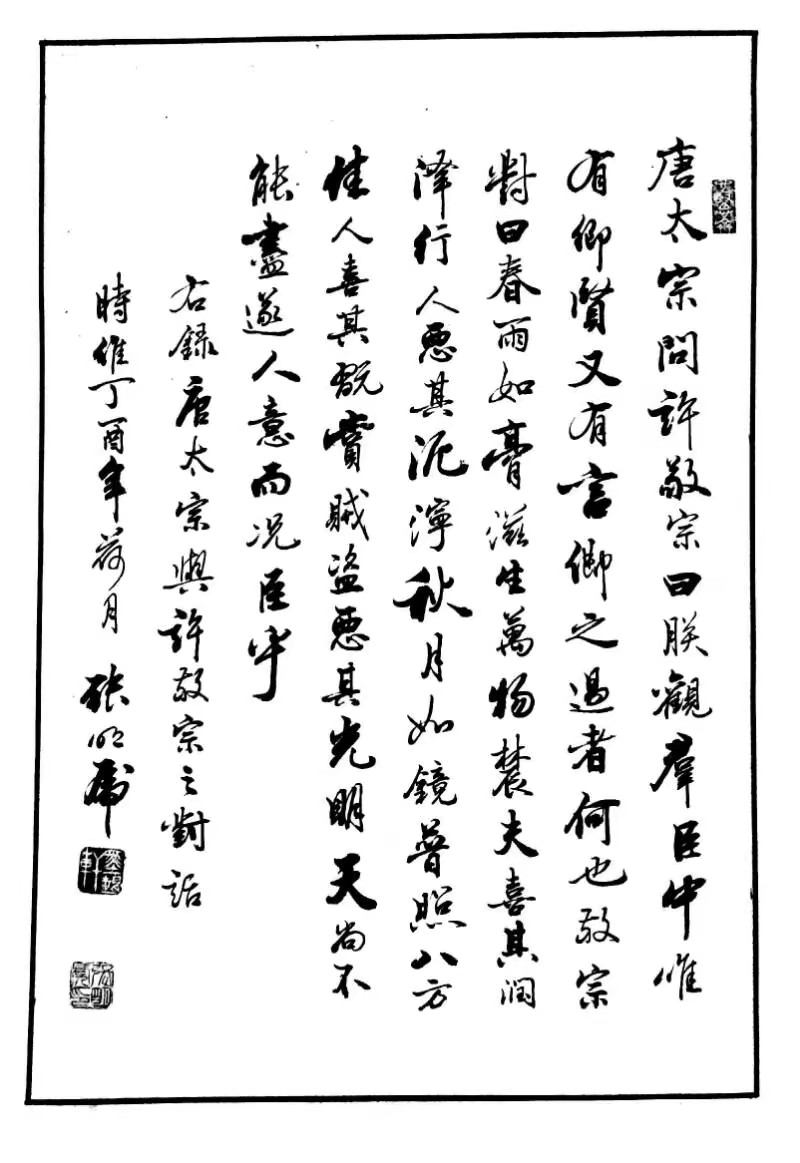 唐太宗問許敬宗曰朕觀羣臣中唯
有卿賢又有言卿之過者何也敬宗
對曰春雨如膏滋生萬物農夫喜其潤
澤行人惡其泥濘秋月如鏡普照八方
佳人喜其翫賞賊盜惡其光明天尚不
能盡遂人意而况臣乎
右録唐太宗與許敬宗之對話
時維丁酉年荷月 張明虎